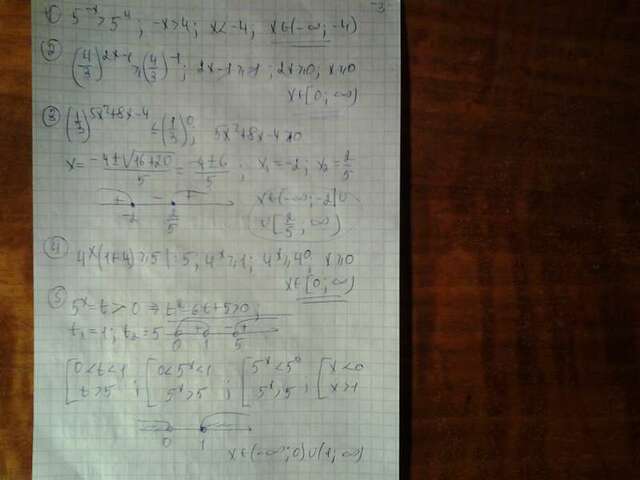 -3
① 5^{-x} > 5^4 ; -x > 4 ; x < -4, x∈(-∞; -4)
② (4/3)^{2x-1} ≥ (4/3)^{-1} ; 2x-1 ≥ -1 ; 2x ≥ 0; x ≥ 0
x∈[0; ∞)
③ (1/3)^{5x²+8x-4} ≤ (1/3)^0, 5x²+8x-4 ≥ 0
x = (-4±√(16+20))/5 = (-4±6)/5 ; x₁ = -2; x₂ = 2/5
+ - +
-2 2/5
x∈(-∞; -2]∪
∪[2/5, ∞)
④ 4^x(1+4) ≥ 5 |:5, 4^x ≥ 1; 4^x ≥ 4^0, x ≥ 0
x∈[0; ∞)
⑤ 5^x = t > 0 ⇒ t²-6t+5>0;
t₁ = 1; t₂ = 5 + - +
0 1 5
[0<t<1 ; [0<5^x<1 ; [5^x<5^0 ; [x<0
t>5 5^x>5 5^x>5 x>1
0 1
x∈(-∞; 0)∪(1; ∞)